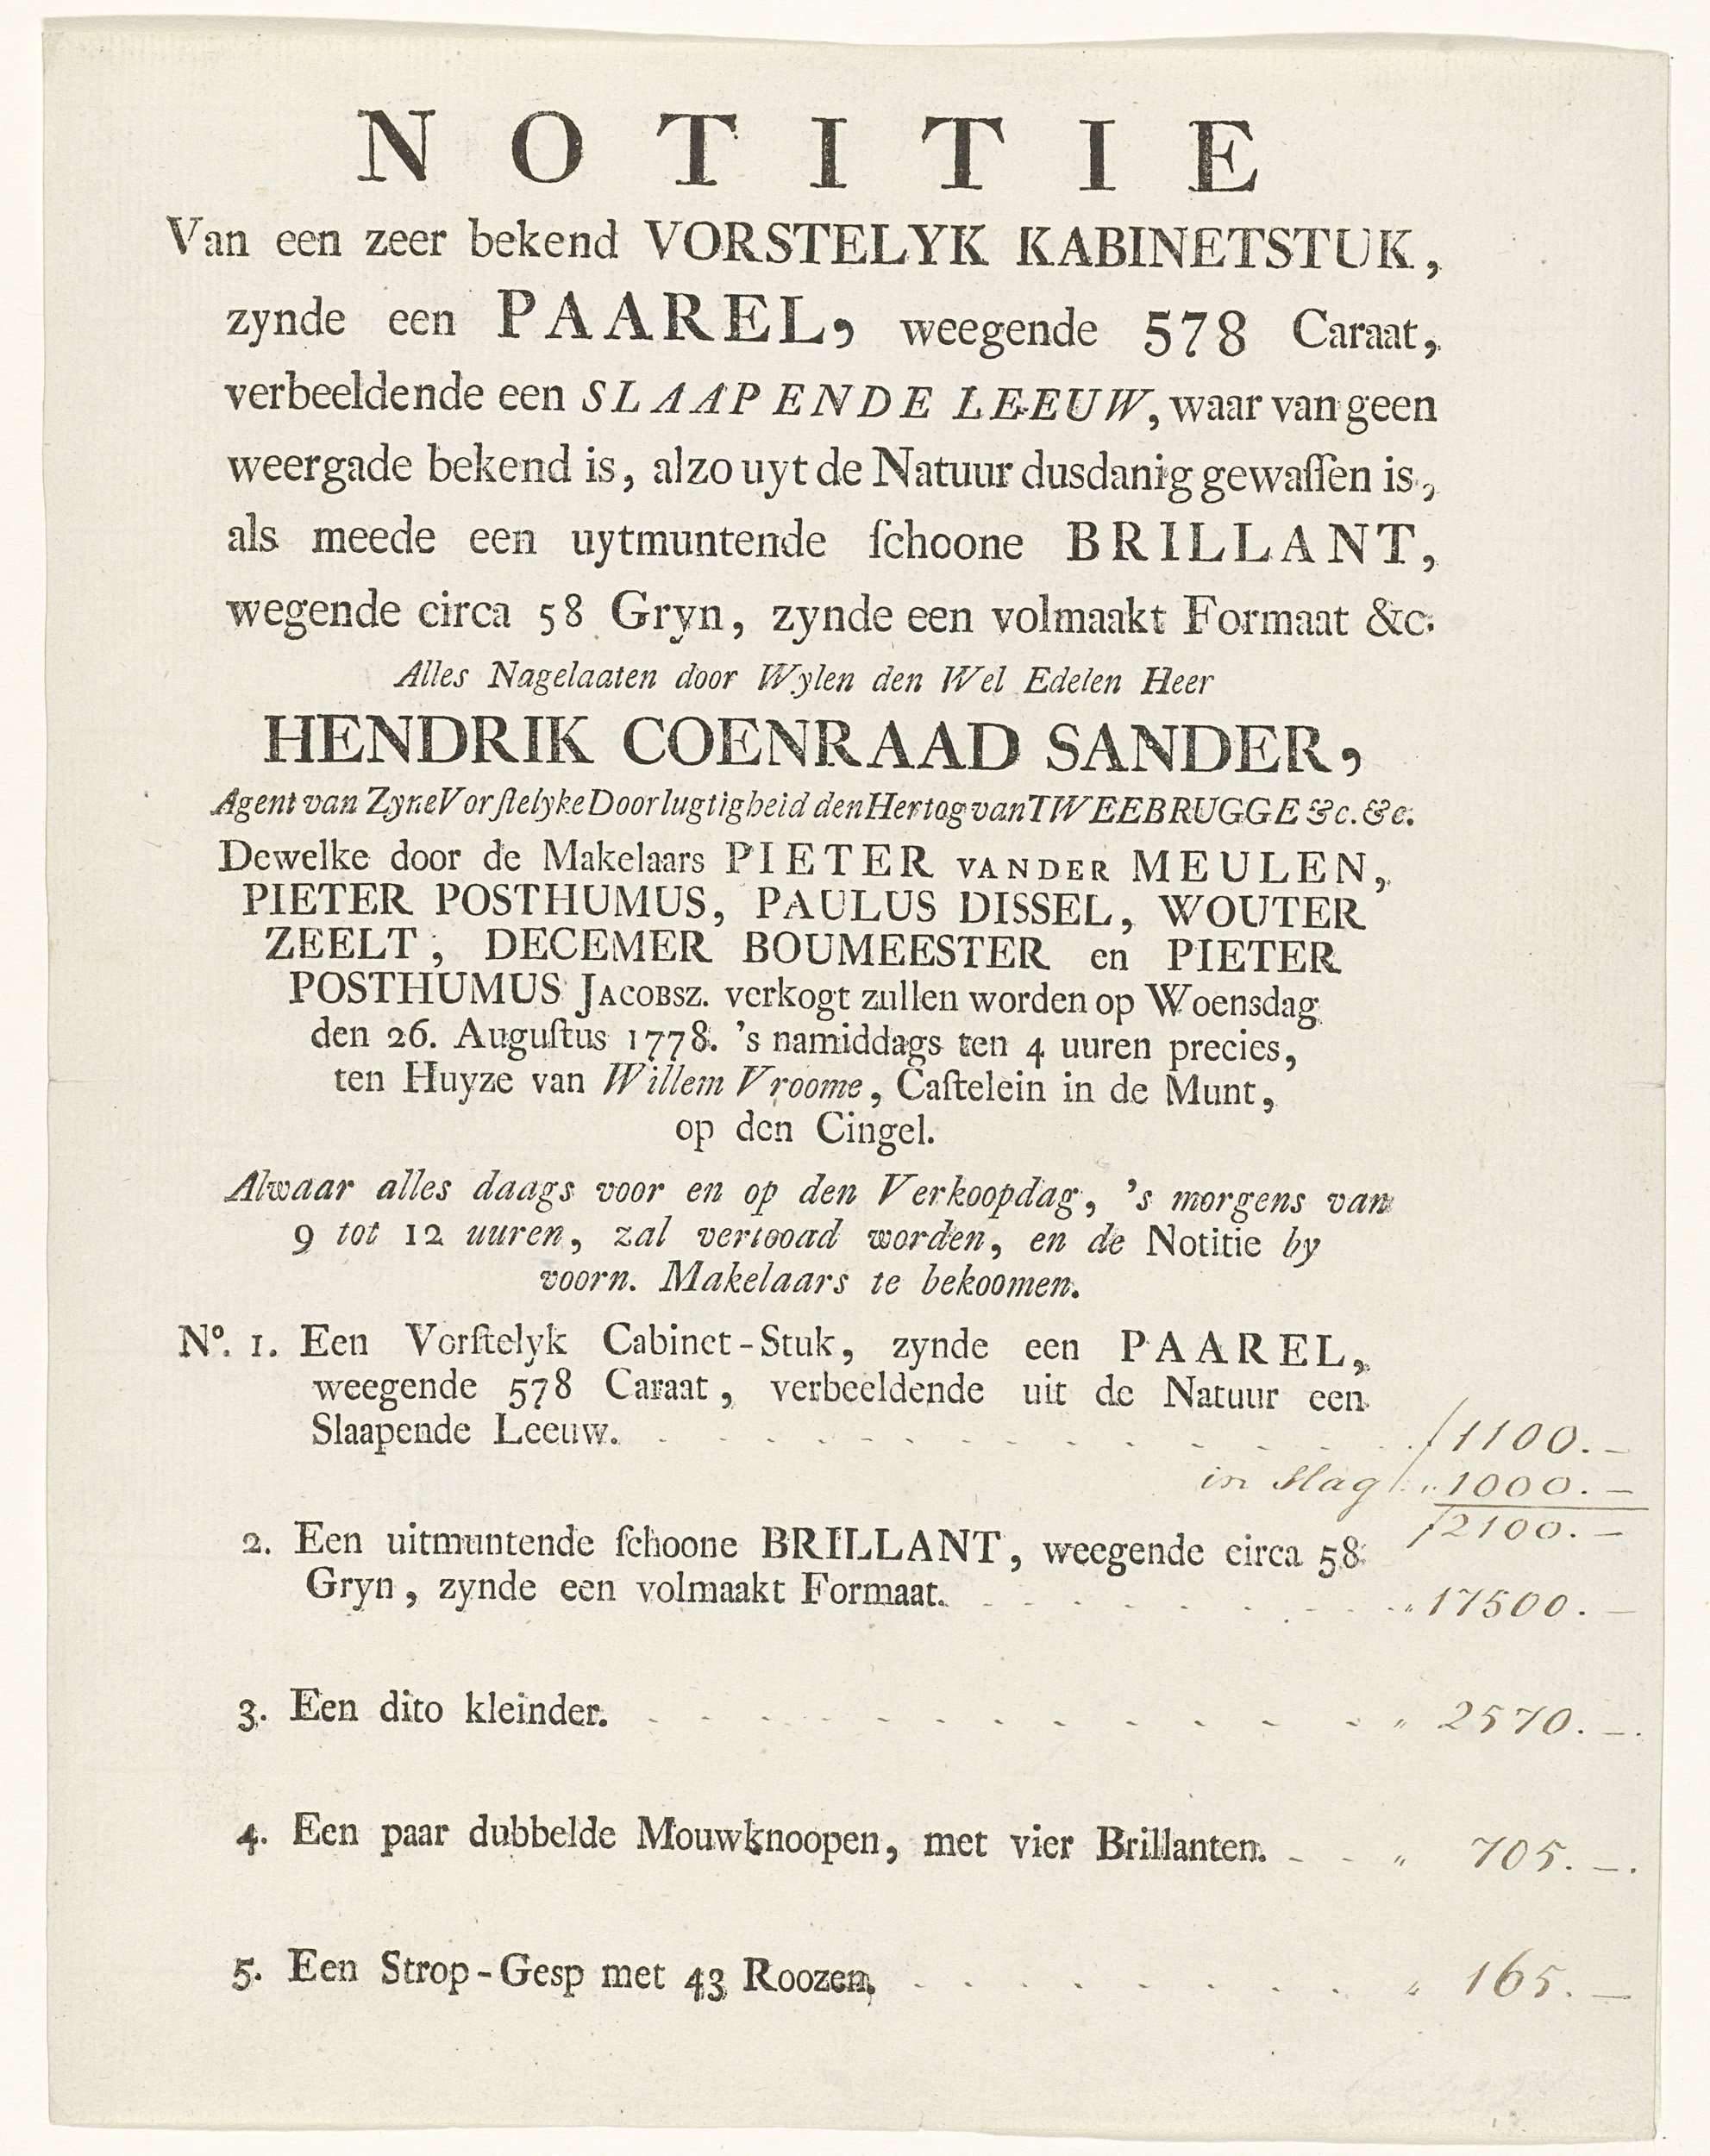 NOTITIE
Van een zeer bekend VORSTELYK KABINETSTUK,
zynde een PAAREL, weegende 578 Caraat,
verbeeldende een SLAAPENDE LEEUW, waar van geen
weergade bekend is, alzo uyt de Natuur dusdanig gewaſſen is,
als meede een uytmuntende ſchoone BRILLANT,
wegende circa 58 Gryn, zynde een volmaakt Formaat &c.
Alles Nagelaaten door Wylen den Wel Edelen Heer
HENDRIK COENRAAD SANDER,
Agent van Zyne Vorſtelyke Doorlugtigheid den Hertog van TWEEBRUGGE &c. &c.
Dewelke door de Makelaars PIETER VANDER MEULEN,
PIETER POSTHUMUS, PAULUS DISSEL, WOUTER
ZEELT, DECEMER BOUMEESTER en PIETER
POSTHUMUS JACOBSZ. verkogt zullen worden op Woensdag
den 26. Auguſtus 1778. 's namiddags ten 4 uuren precies,
ten Huyze van Willem Vroome, Caſtelein in de Munt,
op den Cingel.
Alwaar alles daags voor en op den Verkoopdag, 's morgens van
9 tot 12 uuren, zal vertooad worden, en de Notitie by
voorn. Makelaars te bekoomen.
No. 1. Een Vorſtelyk Cabinet-Stuk, zynde een PAAREL,
weegende 578 Caraat, verbeeldende uit de Natuur een
Slaapende Leeuw. - - - - - - - - - - - - ƒ 1100.-
in slag ƒ „ 1000.-
ƒ 2100.-
2. Een uitmuntende ſchoone BRILLANT, weegende circa 58
Gryn, zynde een volmaakt Formaat. - - - - - - - „ 17500.-
3. Een dito kleinder. - - - - - - - - - - - - „ 2570.-.
4. Een paar dubbelde Mouwknoopen, met vier Brillanten. - - „ 705.-.
5. Een Strop-Gesp met 43 Roozen. - - - - - - - - „ 165.-